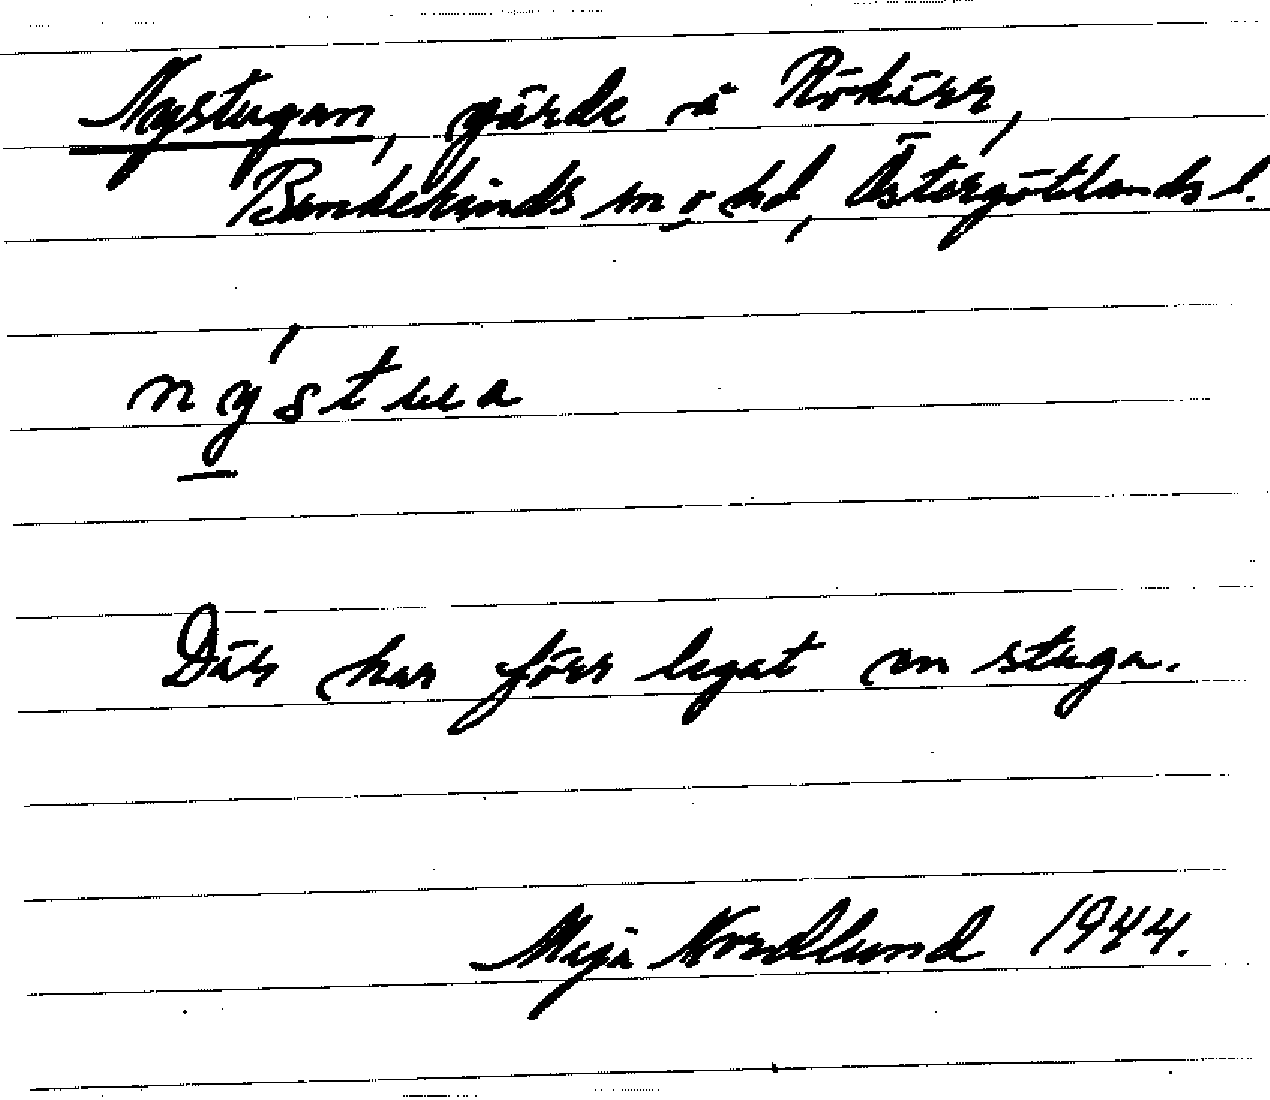 Nystugan, gärde å Rökärr,
Bankekinds sn o hd, Östergötlands l.
nýstua
Där har förr legat en stuga.
Maja Nordlund 1944.